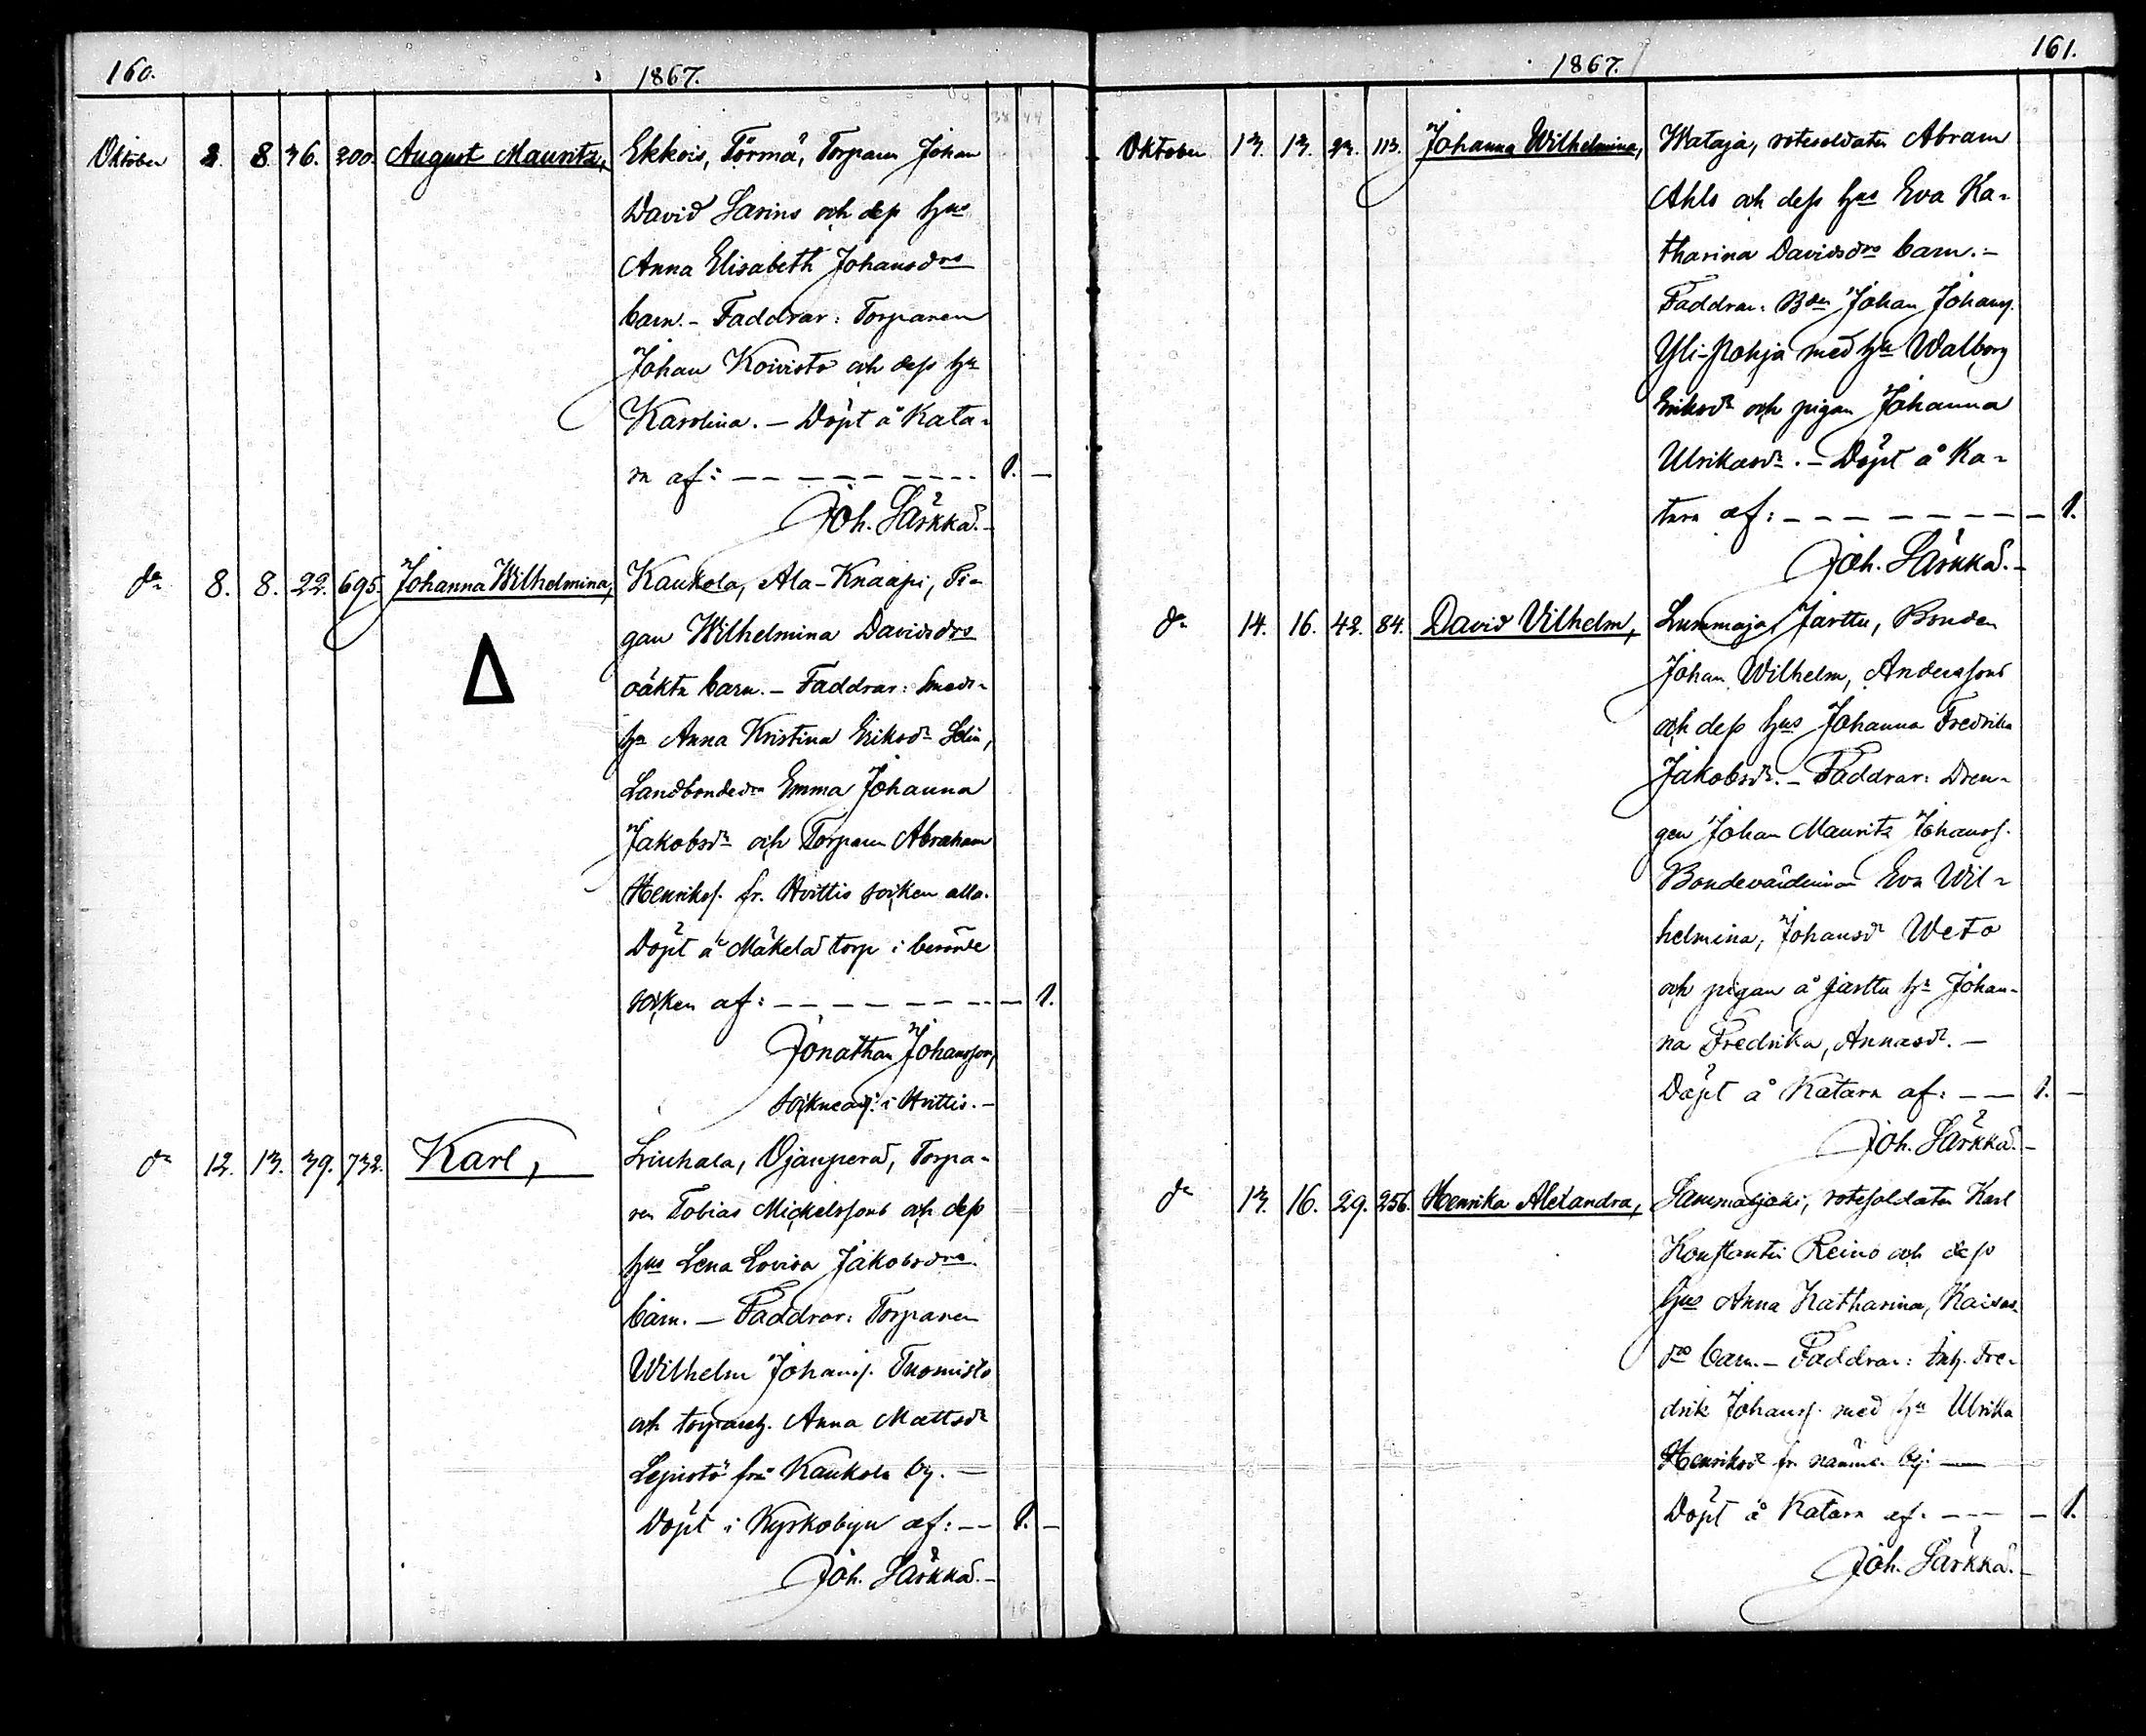 160.
1867.
Oktober 8. 8. 36. 200. August Mauritz, Ekkois, Törmä, Torparen Johan
David Larins och dess hus
Anna Elisabeth Johansdrs
barn. - Faddrar: Torparen
Johan Koivisto och dess hu
Karolina. - Döpt å Kata-
ra af: - - - - - - - 1. -
Joh. Särkkä. -
do 8. 8. 22. 695. Johanna Wilhelmina, Kaukola, Ala-Knaapi, Pi-
gan Wilhelmina Davidsdrs
oäkta barn. - Faddrar: Smeds-
hu Anna Kristina Eriksdr
Landbondedr Emma Johanna
Jakobsdr och Torparen Abraham
Henrikss. fr. Hvittis socken alla.
Döpt å Mäkelä torp i berörde
socken af: - - - - - - - - 1.
Jonathan Johansson,
i Hvittis. -
do 12. 13. 39. 732. Karl, Liuhala, Ojanperä, Torpa-
ren Tobias Mickelssons och dess
hus Lena Lovisa Jakobsdrs
barn. - Faddrar: Torparen
Wilhelm Johanss. Tuomisto
och Anna Mattsdr
Lepistö från Kaukola by. -
Döpt i Kyrkobyn af: - - 1. -
Joh. Särkkä. -
161.
1867.
Oktober 13. 13. 23. 113. Johanna Wilhelmina, Wataja, rotesoldaten Abram
Ahls och dess hus Eva Ka-
tharina Davidsdrs barn. -
Faddrar: Bden Johan Johanss.
Yli-Pohja med hu Walborg
Eriksdr och pigan Johanna
Ulrikasdr. - Döpt å Ka-
tara af: - - - - - - - - 1.
Joh. Särkkä. -
do 14. 16. 42. 84. David Vilhelm, Lummaja, Jarttu, Bonden
Johan Wilhelm, Anderssons
och dess hus Johanna Fredrika
Jakobsdr. - Faddrar: Dren-
gen Johan Mauritz Johanss.
Bondevärdinnan Eva Wil-
helmina, Johansdr Weto
och pigan å Jarttu Johan-
na Fredrika, Annasdr. -
Döpt å Katara af: - - 1. -
Joh. Särkkä. -
do 13. 16. 29. 256. Henrika Alexandra, Sammaljoki, rotesoldaten Karl
Konstantin Reino och dess
hus Anna Katharina, Kaisas
drs barn. - Faddrar: Inh. Fre-
drik Johanss. med hu Ulrika
Henriksdr fr. by. -
Döpt å Katara af. - - - - 1.
Joh. Särkkä. -